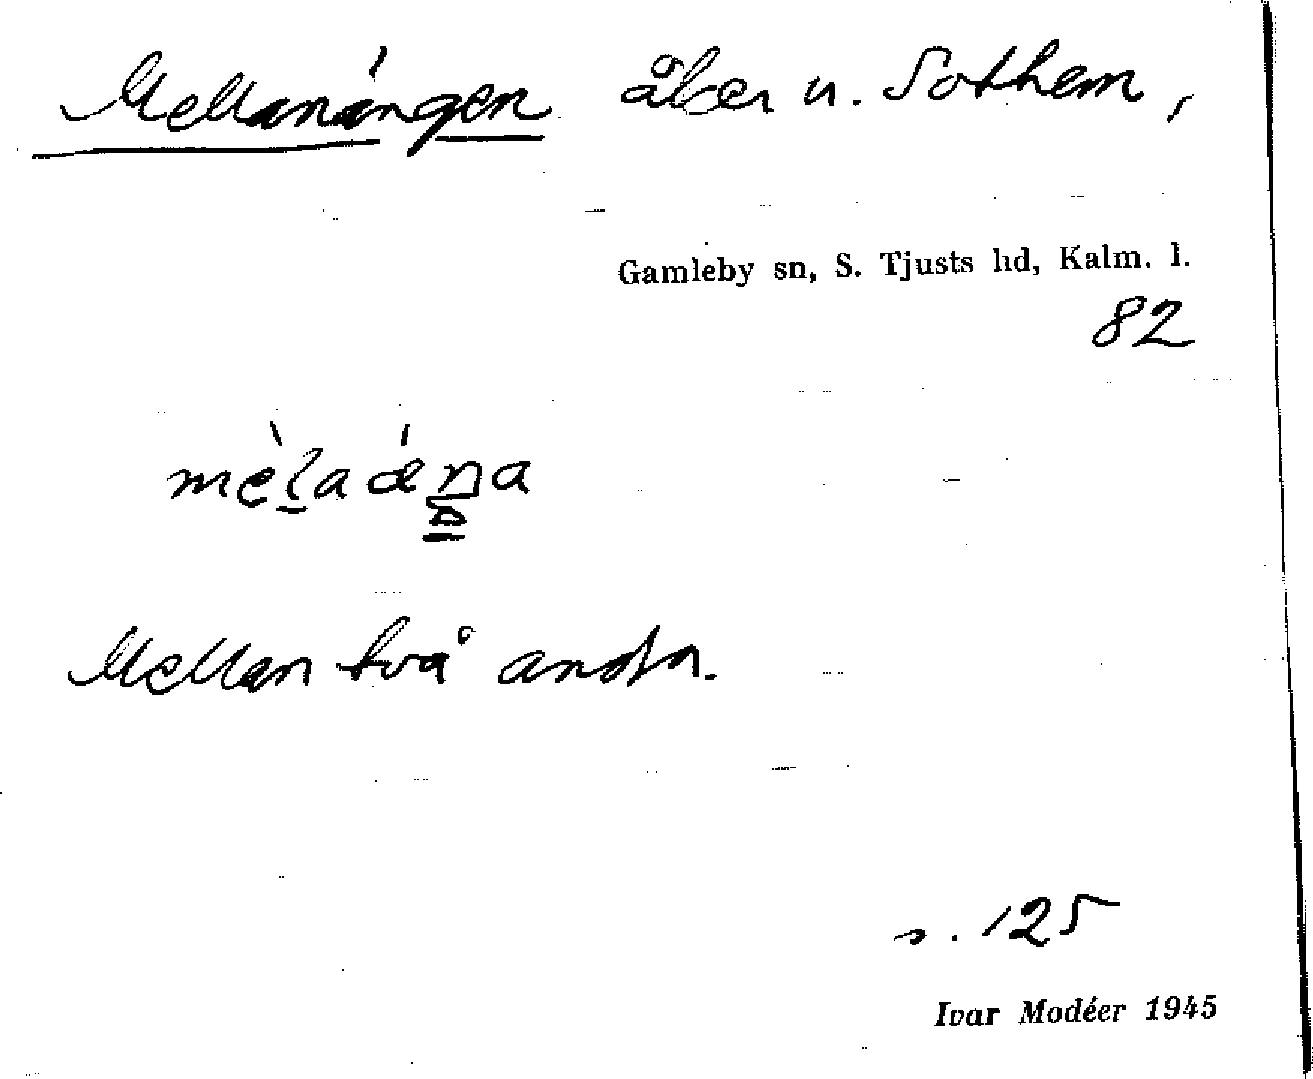 Mellanängen åker u. Sothem,
Gamleby sn, S. Tjusts hd, Kalm. l.
82
mèḷaǽŋa
Mellan två andra.
s. 125
Ivar Modéer 1945